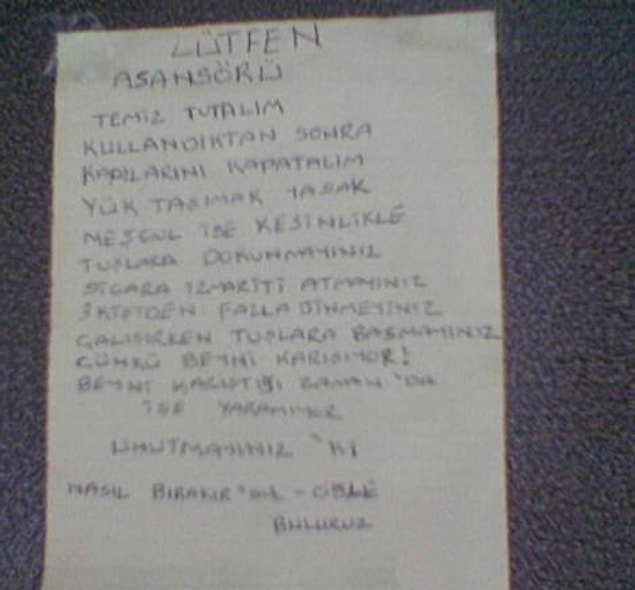 LÜTFEN
ASANSÖRÜ
TEMİZ TUTALIM
KULLANDIKTAN SONRA
KAPILARINI KAPATALIM
YÜK TAŞIMAK YASAK
MEŞGUL İSE KESİNLİKLE
TUŞLARA DOKUNMAYINIZ
SİGARA İZMARİTİ ATMAYINIZ
3 KİŞİDEN FAZLA BİNMEYİNİZ
ÇALIŞIRKEN TUŞLARA BASMAYINIZ
ÇÜNKÜ BEYNİ KARIŞIYOR!
BEYNİ KARIŞTIĞI ZAMAN 'DA
İŞE YARAMIYOR
UNUTMAYINIZ 'Kİ
NASIL BIRAKIR
BULURUZ